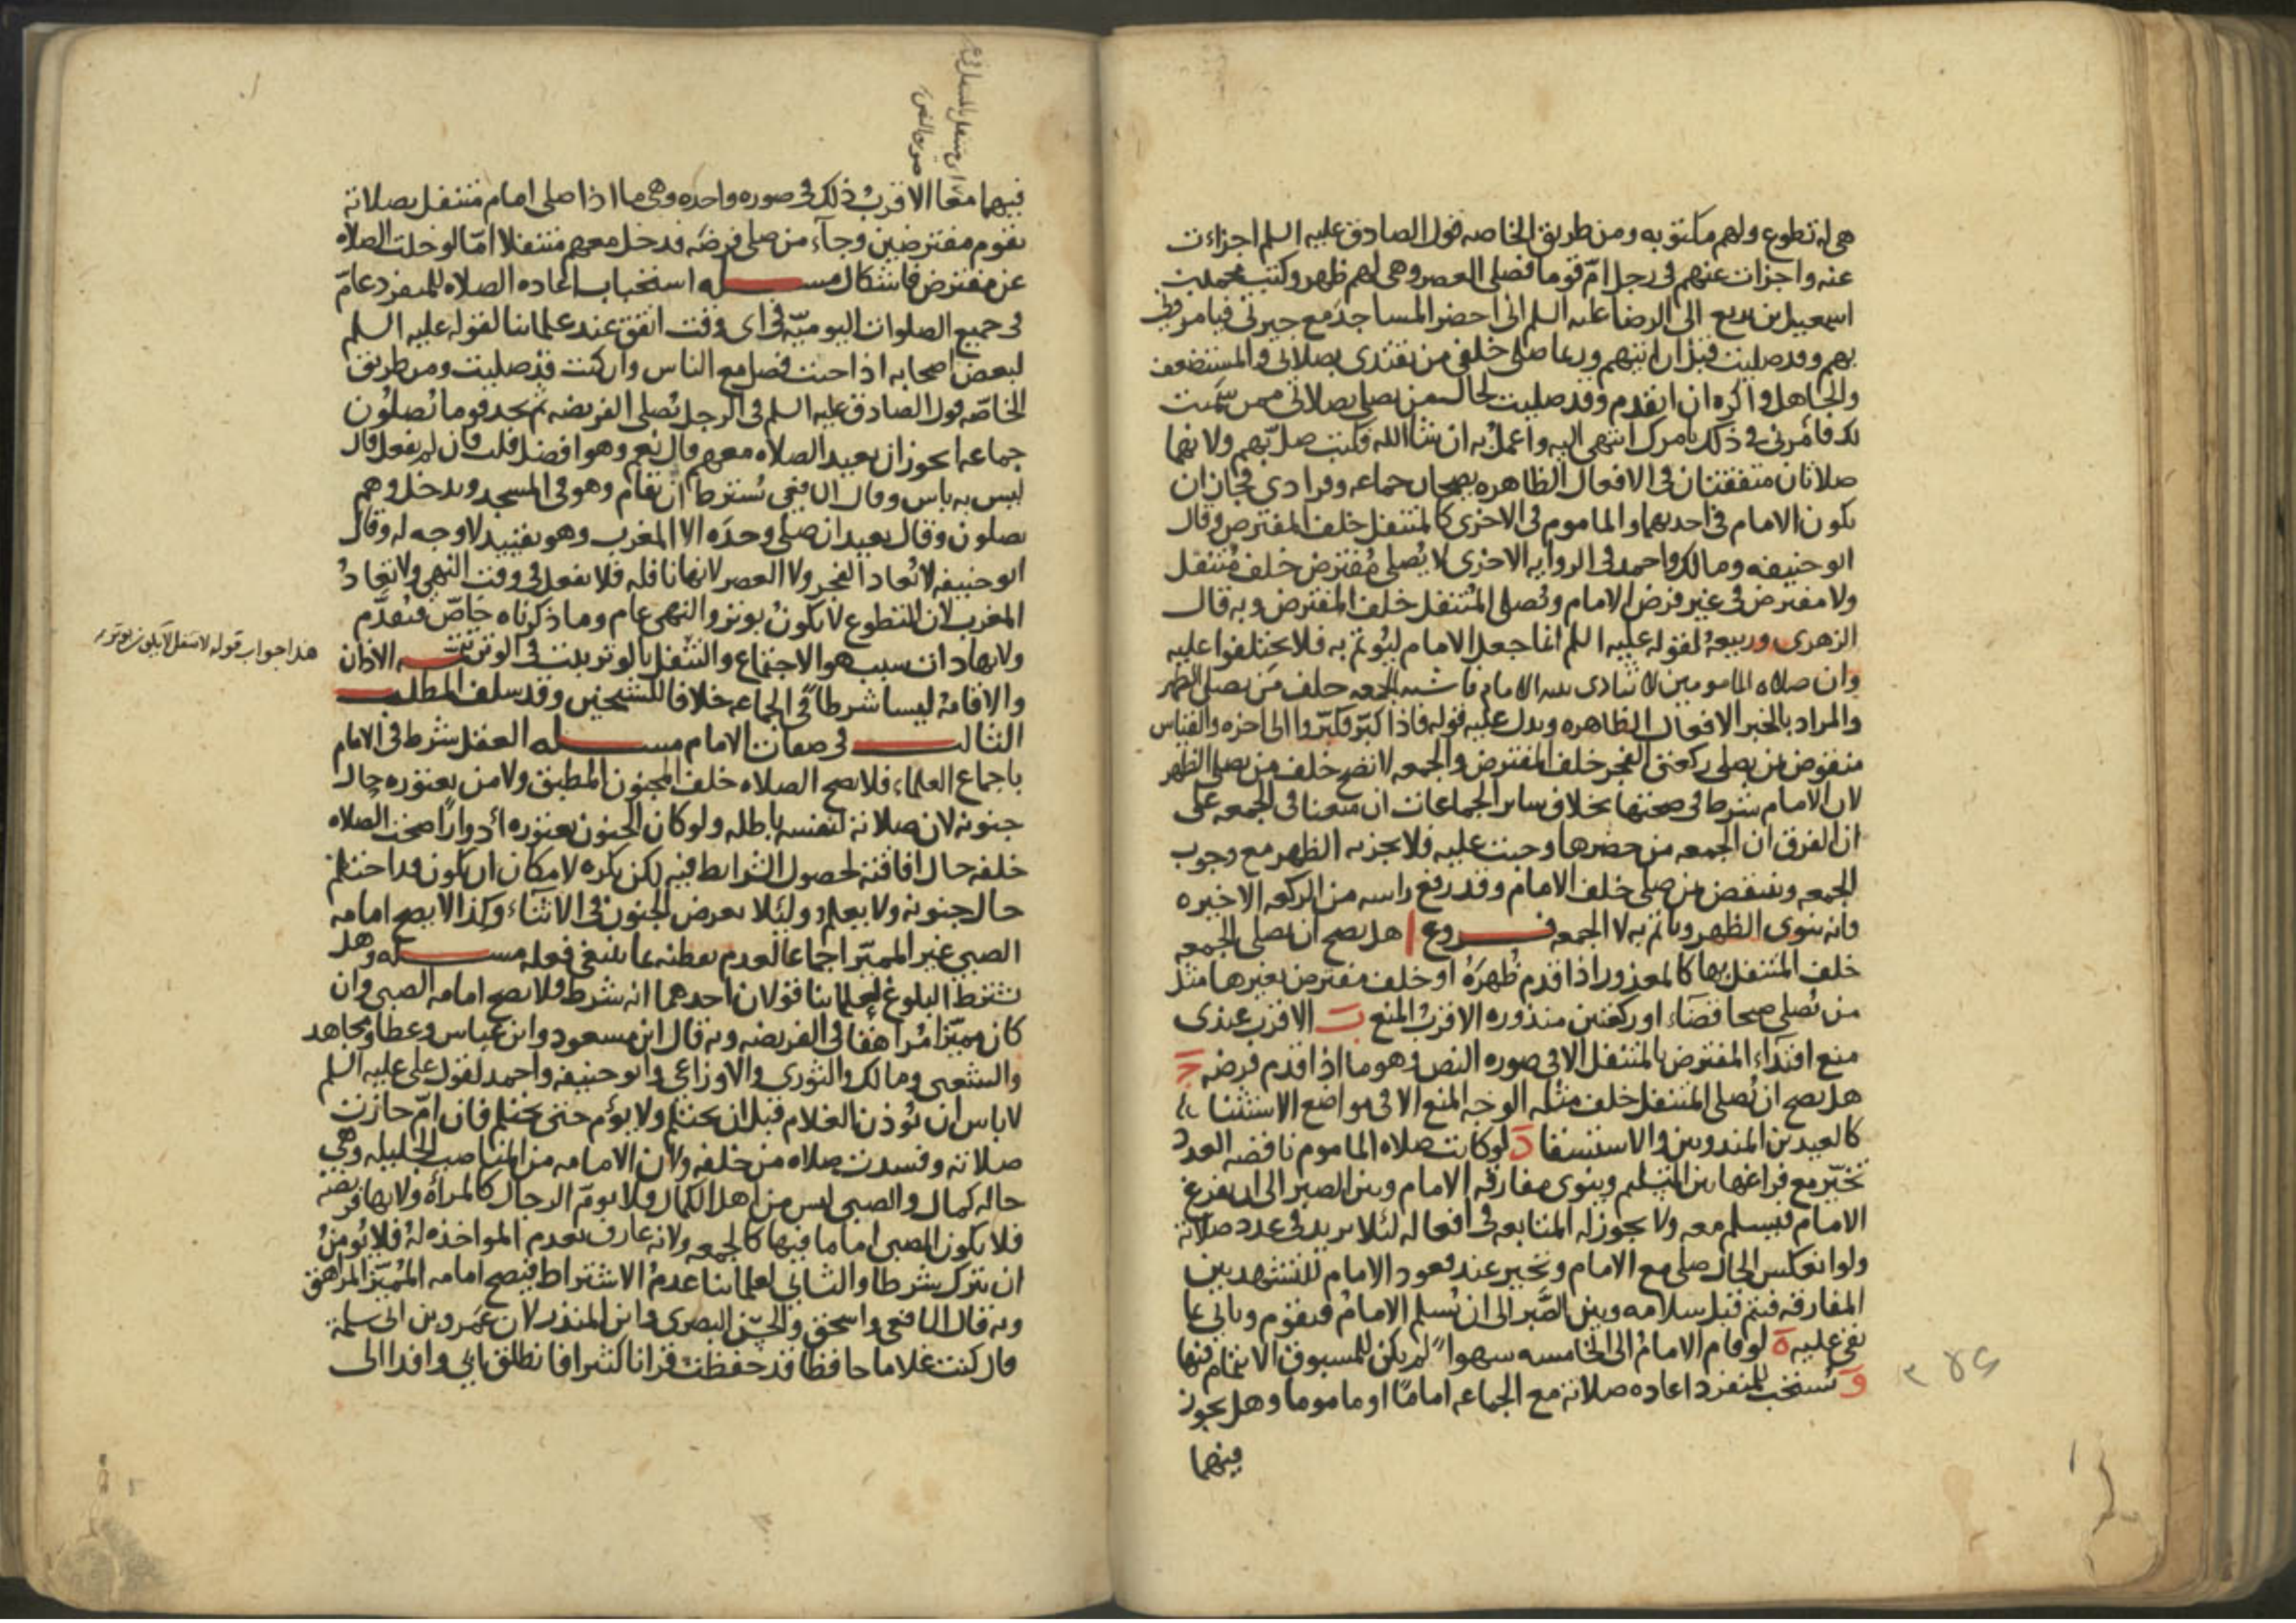 هي له تطوع ولهم مكتوبه ومن طريق الخاصه قول الصادق عليه السلم اجزات
عنه واجزات عنهم في رجل ام قوما فصلى العصر وهي لهم ظهر وكتب محمد بن
اسمعيل بن بزيع الى الرضا عليه السلم اني احضر المساجد مع جيرتي فيامروني
بهم وقد صليت قبل ان اتيهم وربما صلى خلفي من يقتدى بصلاتي والمستضعف
والجاهل واكره ان اتقدم وقد صليت لحال من يصلي بصلاتي ممن سميت
لك فأمرني في ذلك بامرك انتهي اليه واعمل به ان شا الله فكتب صل بهم ولانهما
صلاتان متفقتان في الافعال الظاهره يصحان جماعه وفرادى فجاز ان
يكون الامام في احديهما والماموم في الاخرى كالمتنفل خلف المفترض وقال
ابو حنيفه ومالك واحمد في الروايه الاخرى لا يُصلي مُفترض خلف مُتنفل
ولا مفترض في غير فرض الامام ويُصلي المُتنفل خلف المفترض وبه قال
الزهرى وربيعة لقوله عليه السلم انما جعل الامام ليُوتم به فلا يختلفوا عليه
وان صلاه المامومين لا تتادى بنيه الامام فاشبه الجمعه خلف من يصلي الظهر
والمراد بالخبر الافعال الظاهره ويدل عليه قوله فاذا كبّر فكبّروا الى اخره والقياس
منقوض بمن يصلي ركعتي الفجر خلف المفترض والجمعه لا تصح خلف من يصلي الظهر
لان الامام شرط في صحتها بخلاف ساير الجماعات ان منعنا في الجمعه على
ان الفرق ان الجمعه من حضرها وجبت عليه فلا يجزيه الظهر مع وجوب
الجمعه وينتقض بمن صلى خلف الامام وقد رفع راسه من الركعه الاخيره
فانه ينوى الظهر وياتم به لا الجمعه فروع ا هل يصح ان يصلي الجمعه
خلف المتنفل بها كالمعذور اذا قدم ظُهرَهُ او خلف مفترض بغيرها مثل
من يُصلي صبحا قضاء او ركعتين منذوره الاقرب المنع ب الاقرب عندى
منع اقتداء المفترض بالمتنفل الا في صوره النص وهو ما اذا قدم فرضه ج
هل يصح ان يُصلي المتنفل خلف مثله الوجه المنع الا في مواضع الاستثناء
كالعيدين المندوبين والاستسقا د لو كانت صلاه الماموم ناقصه العدد
تخيّر مع فراغها بين التسليم وينوى مفارقه الامام وبين الصبر الى ان يفرغ
الامام فيسلم معه ولا يجوز له المتابعه في افعاله لئلا يزيد في عدد صلاته
ولو انعكس الحال صلى مع الامام وتخير عند قعود الامام للتشهد بين
المفارقه فيتم قبل سلامه وبين الصَّبر الى ان يُسلم الامامُ فيقوم وياتي بما
بقي عليه ه لو قام الامامُ الى الخامسه سهوا لم يكن للمسبوق الايتمام فيها
و يُستحب للمنفرد اعاده صلاته مع الجماعه امامًا او ماموما وهل يجوز
فيهما
فيهما معًا الاقربُ ذلك في صوره واحده وهي ما اذا صلى امام متنفل بصلاته
بقوم مفترضين وجآء من صلى فرضَه فدخل معهم متنفلا امّا لو خلت الصلاه
عن مفترض فاشكال مسله استحباب اعاده الصلاه للمنفرد عامّ
في جميع الصلوات اليوميّه في اى وقت اتفق عند علمائنا لقوله عليه السلم
لبعض اصحابه اذا جيت فصل مع الناس وان كنت قد صليت ومن طريق
الخاصّه قول الصادق عليه السلم في الرجل يُصلي الفريضه ثم يجد قوما يُصلّون
جماعه ايجوز ان يعيد الصلاه معهم قال نعم وهو افضل قلت فان لم يفعل قال
ليس به باس وقال الشافعي يُشترط ان تقام وهو في المسجد ويدخل وهم
يصلون وقال يعيد ان صلى وحدَه الا المغرب وهو تقييد لا وجه له وقال
ابو حنيفه لا تُعاد الفجر ولا العصر لانها نافله فلا تفعل في وقت النهي ولا تعادُ
المغرب لان التطوع لا يكونُ بوتر والنهى عام وما ذكرناه خاصّ فيُقدّم
ولانها ذات سبب هو الاجتماع والتنفل بالوتر يثبت في الوتر تتمه الاذان
والاقامة ليسا شرطا في الجماعه خلافا للشيخين وقد سلف المطلب
الثالث في صفات الامام مسله العقل شرط في الامام
باجماع العلماء فلا تصح الصلاه خلف المجنون المطبق ولا من يعتوره حال
جنونه لان صلاته لنفسه باطله ولو كان الجنون يعتوره أدوارًا صحت الصلاه
خلفه حال افاقته لحصول الشرايط فيه لكن يكره لامكان ان يكون قد احتلم
حال جنونه ولا يعلم ولئلا يعرض الجنون في الاثناء وكذا لا يصح امامه
الصبي غير المميّز اجماعا لعدم تفطنه بما ينبغي فعله مسله وهل
يشترط البلوغ لعلمائنا قولان احدهما انه شرط فلا يصح امامه الصبي وان
كان مميّزا مُراهقا في الفريضه وبه قال ابن مسعود وابن عباس وعطا ومجاهد
والشعبي ومالك والثورى والاوزاعي وابو حنيفه واحمد لقول علي عليه السلم
لا باس ان يُوذن الغلام قبل ان يحتلم ولا يؤم حتى يحتلم فان امّ جازت
صلاته وفسدت صلاه من خلفه ولان الامامه من المناصب الجليله وهي
حاله كمال والصبي ليس من اهل الكمال ولا يومّ الرجال كالمرأه ولانها فريضه
فلا يكون الصبي اماما فيها كالجمعه ولانه عارف بعدم المواخذه لهُ فلا يُومنُ
ان يترك شرطا والثاني لعلمائنا عدمُ الاشتراط فيصح امامه المُميّز المراهق
وبه قال الشافعي واسحق والحسن البصرى وابن المنذر لان عَمرو بن ابي سلمة
قال كنت غلاما حافظا قد حفظت قرانا كثيرا فانطلق بابي وافدا الى
هذا جواب قوله لان التنفل لا يكون بوتر